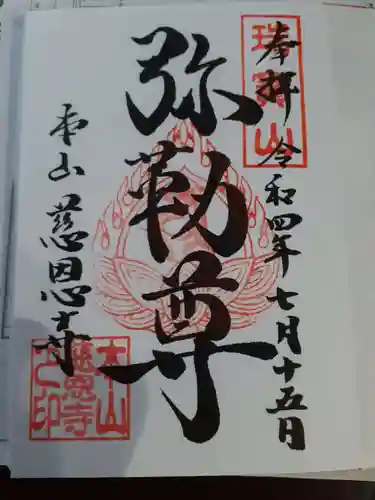 奉拝 令和四年七月十五日
瑞宝山
弥勒尊
本山 慈恩寺
本山慈恩寺之印